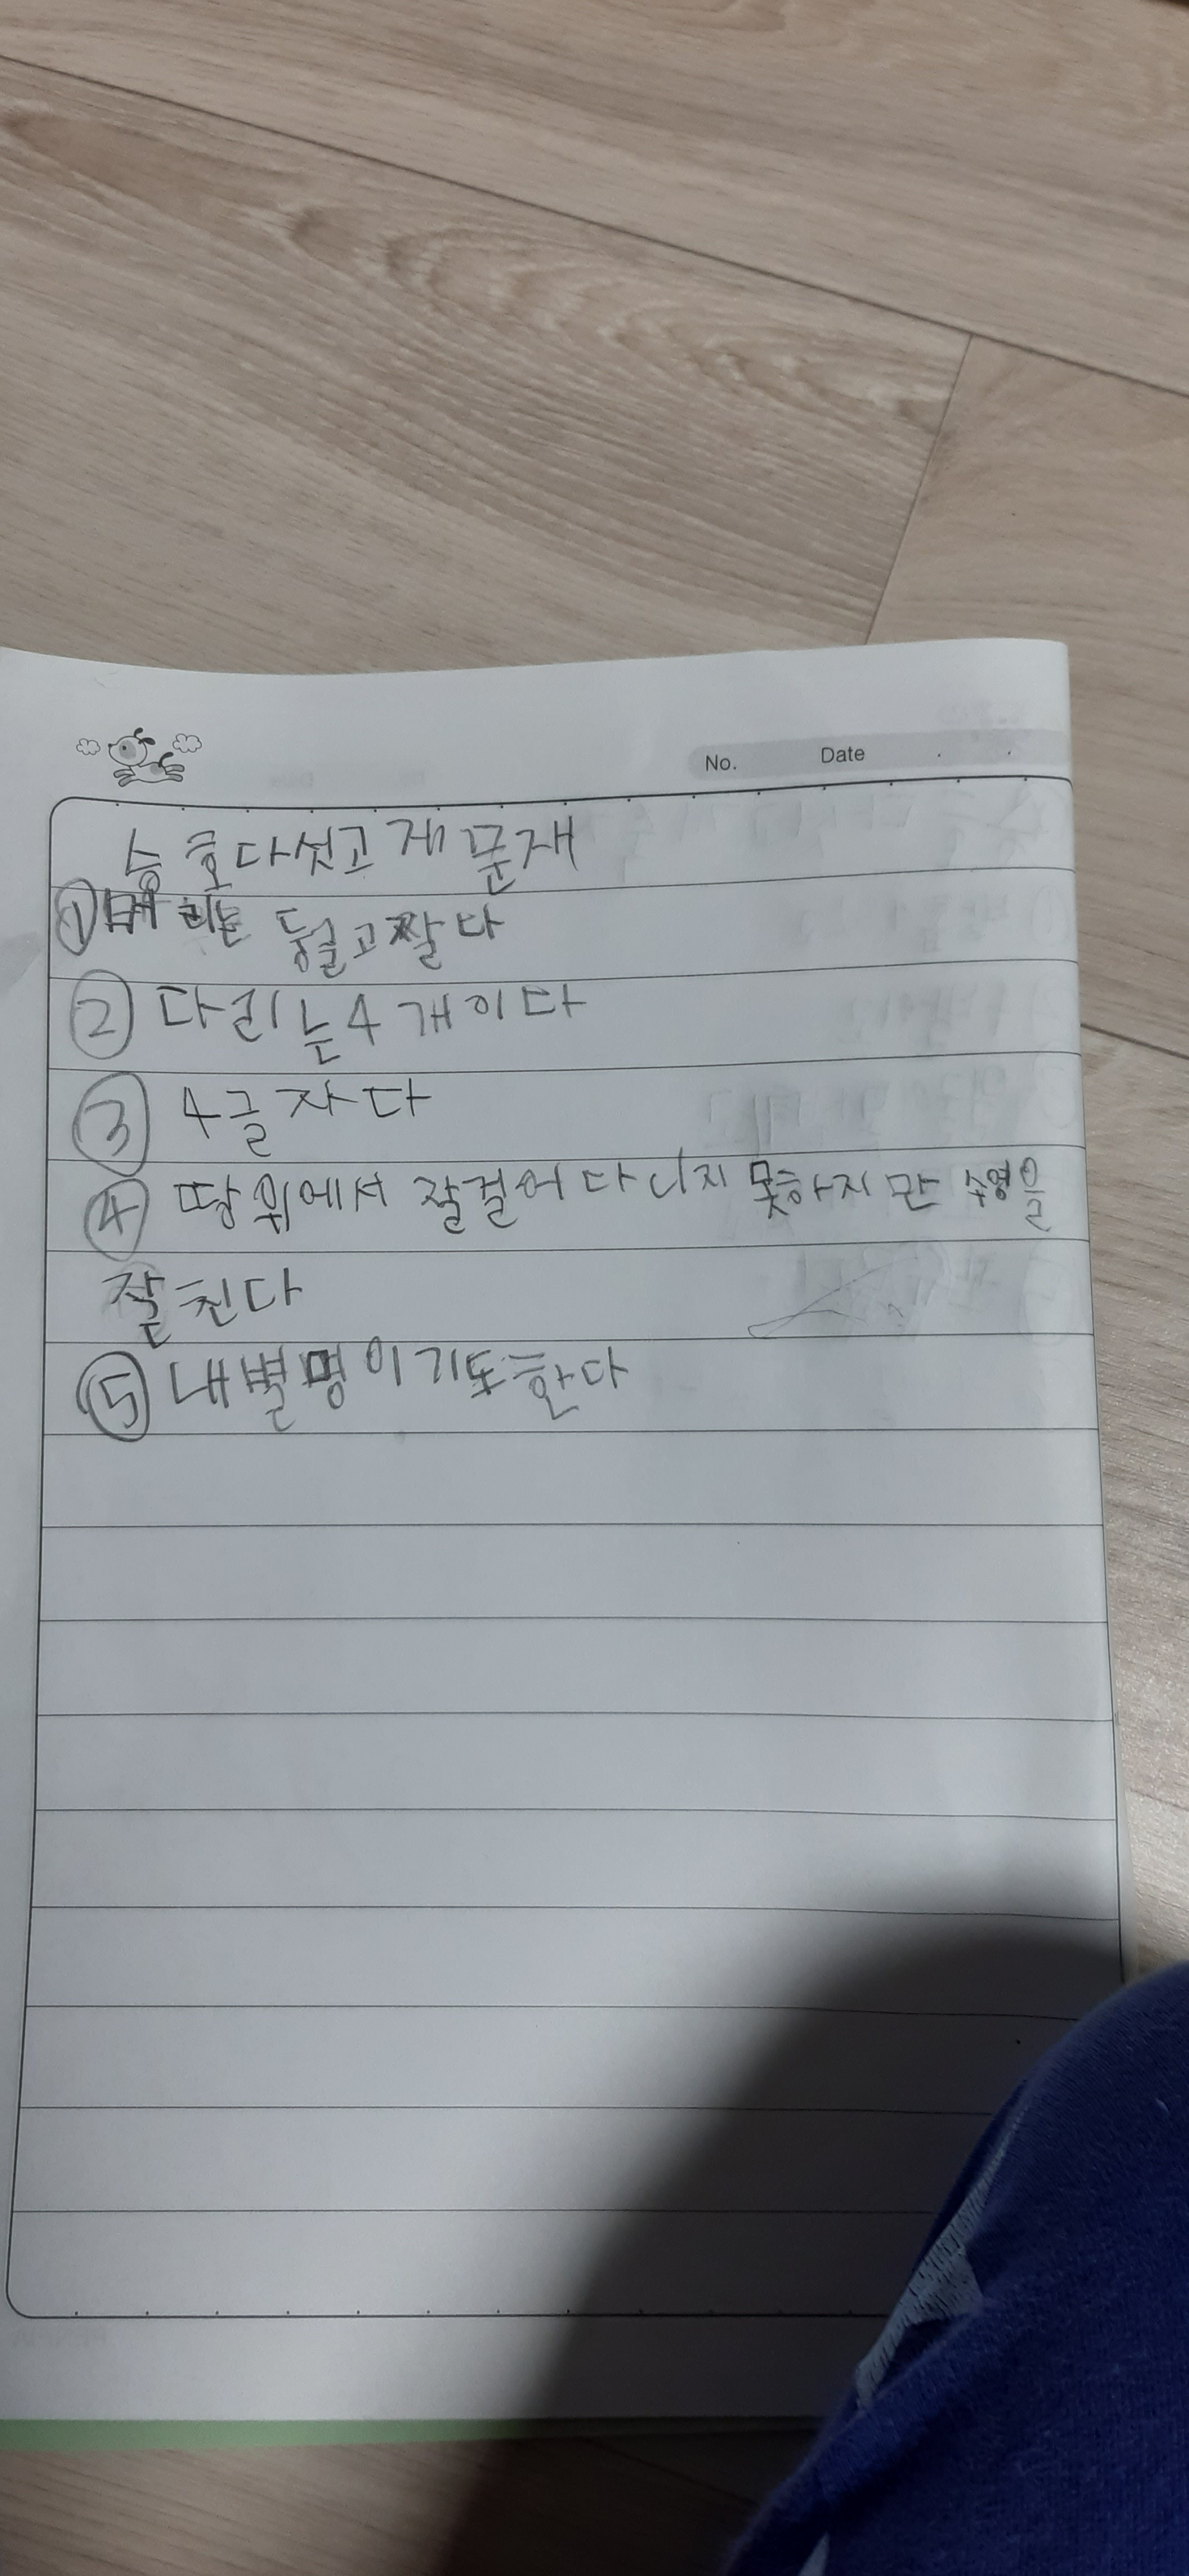 No. Date
승호다섯고개문재
①머리는 둥글고짤다
② 다리는4개이다
③ 4글자다
④ 땅위에서 잘걸어다니지 못하지만 수영을
잘친다
⑤ 내별명이기도한다